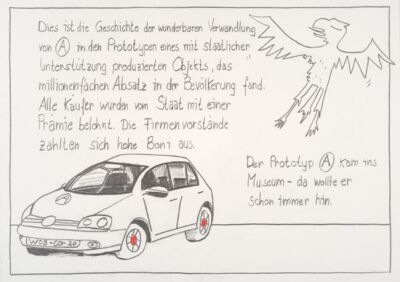 Dies ist die Geschichte der wunderbaren Verwandlung
von Ⓐ in den Prototypen eines mit staatlicher
Unterstützung produzierten Objekts, das
millionenfachen Absatz in der Bevölkerung fand.
Alle Käufer wurden vom Staat mit einer
Prämie belohnt. Die Firmenvorstände
zahlten sich hohe Boni aus.
Der Prototyp Ⓐ kam ins
Museum - da wollte er
schon immer hin.
Ⓐ
WOB-CO-20